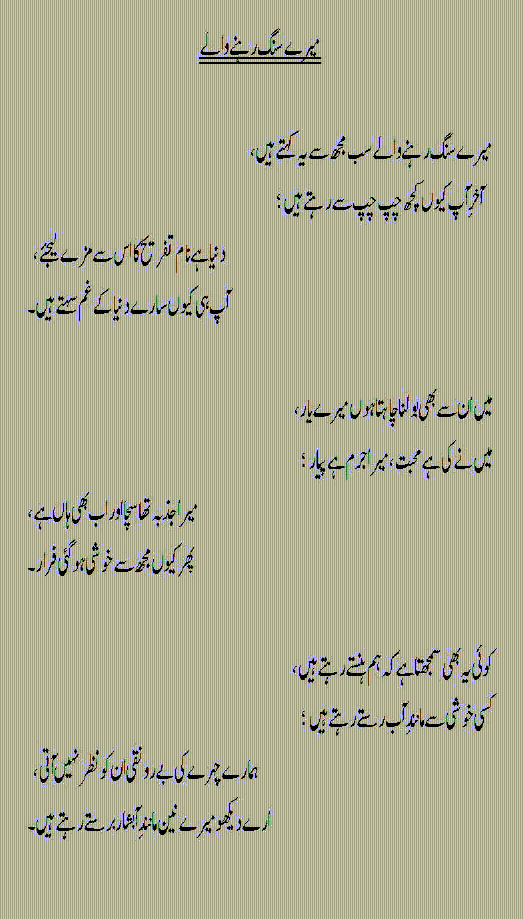 میرے سنگ رہنے والے
میرے سنگ رہنے والے سب مجھ سے یہ کہتے ہیں،
آخر آپ کیوں کچھ چپ چپ سے رہتے ہیں؛
دنیا ہے نام تفریح کا اس سے مزے لیجئے،
آپ ہی کیوں سارے دنیا کے غم سہتے ہیں۔
میں ان سے بھی بولنا چاہتا ہوں میرے یار،
میں نے کی ہے محبت، میرا جرم ہے پیار؛
میرا جذبہ تھا سچا اور اب بھی ہاں ہے،
پھر کیوں مجھ سے خوشی ہو گئی فرار۔
کوئی یہ بھی سمجھتا ہے کہ ہم ہنستے رہتے ہیں،
کسی خوشی سے مانندِ آب رستے رہتے ہیں؛
ہمارے چہرے کی بے رونقی ان کو نظر نہیں آتی،
ارے دیکھو میرے نین مانندِ آبشار برستے رہتے ہیں۔